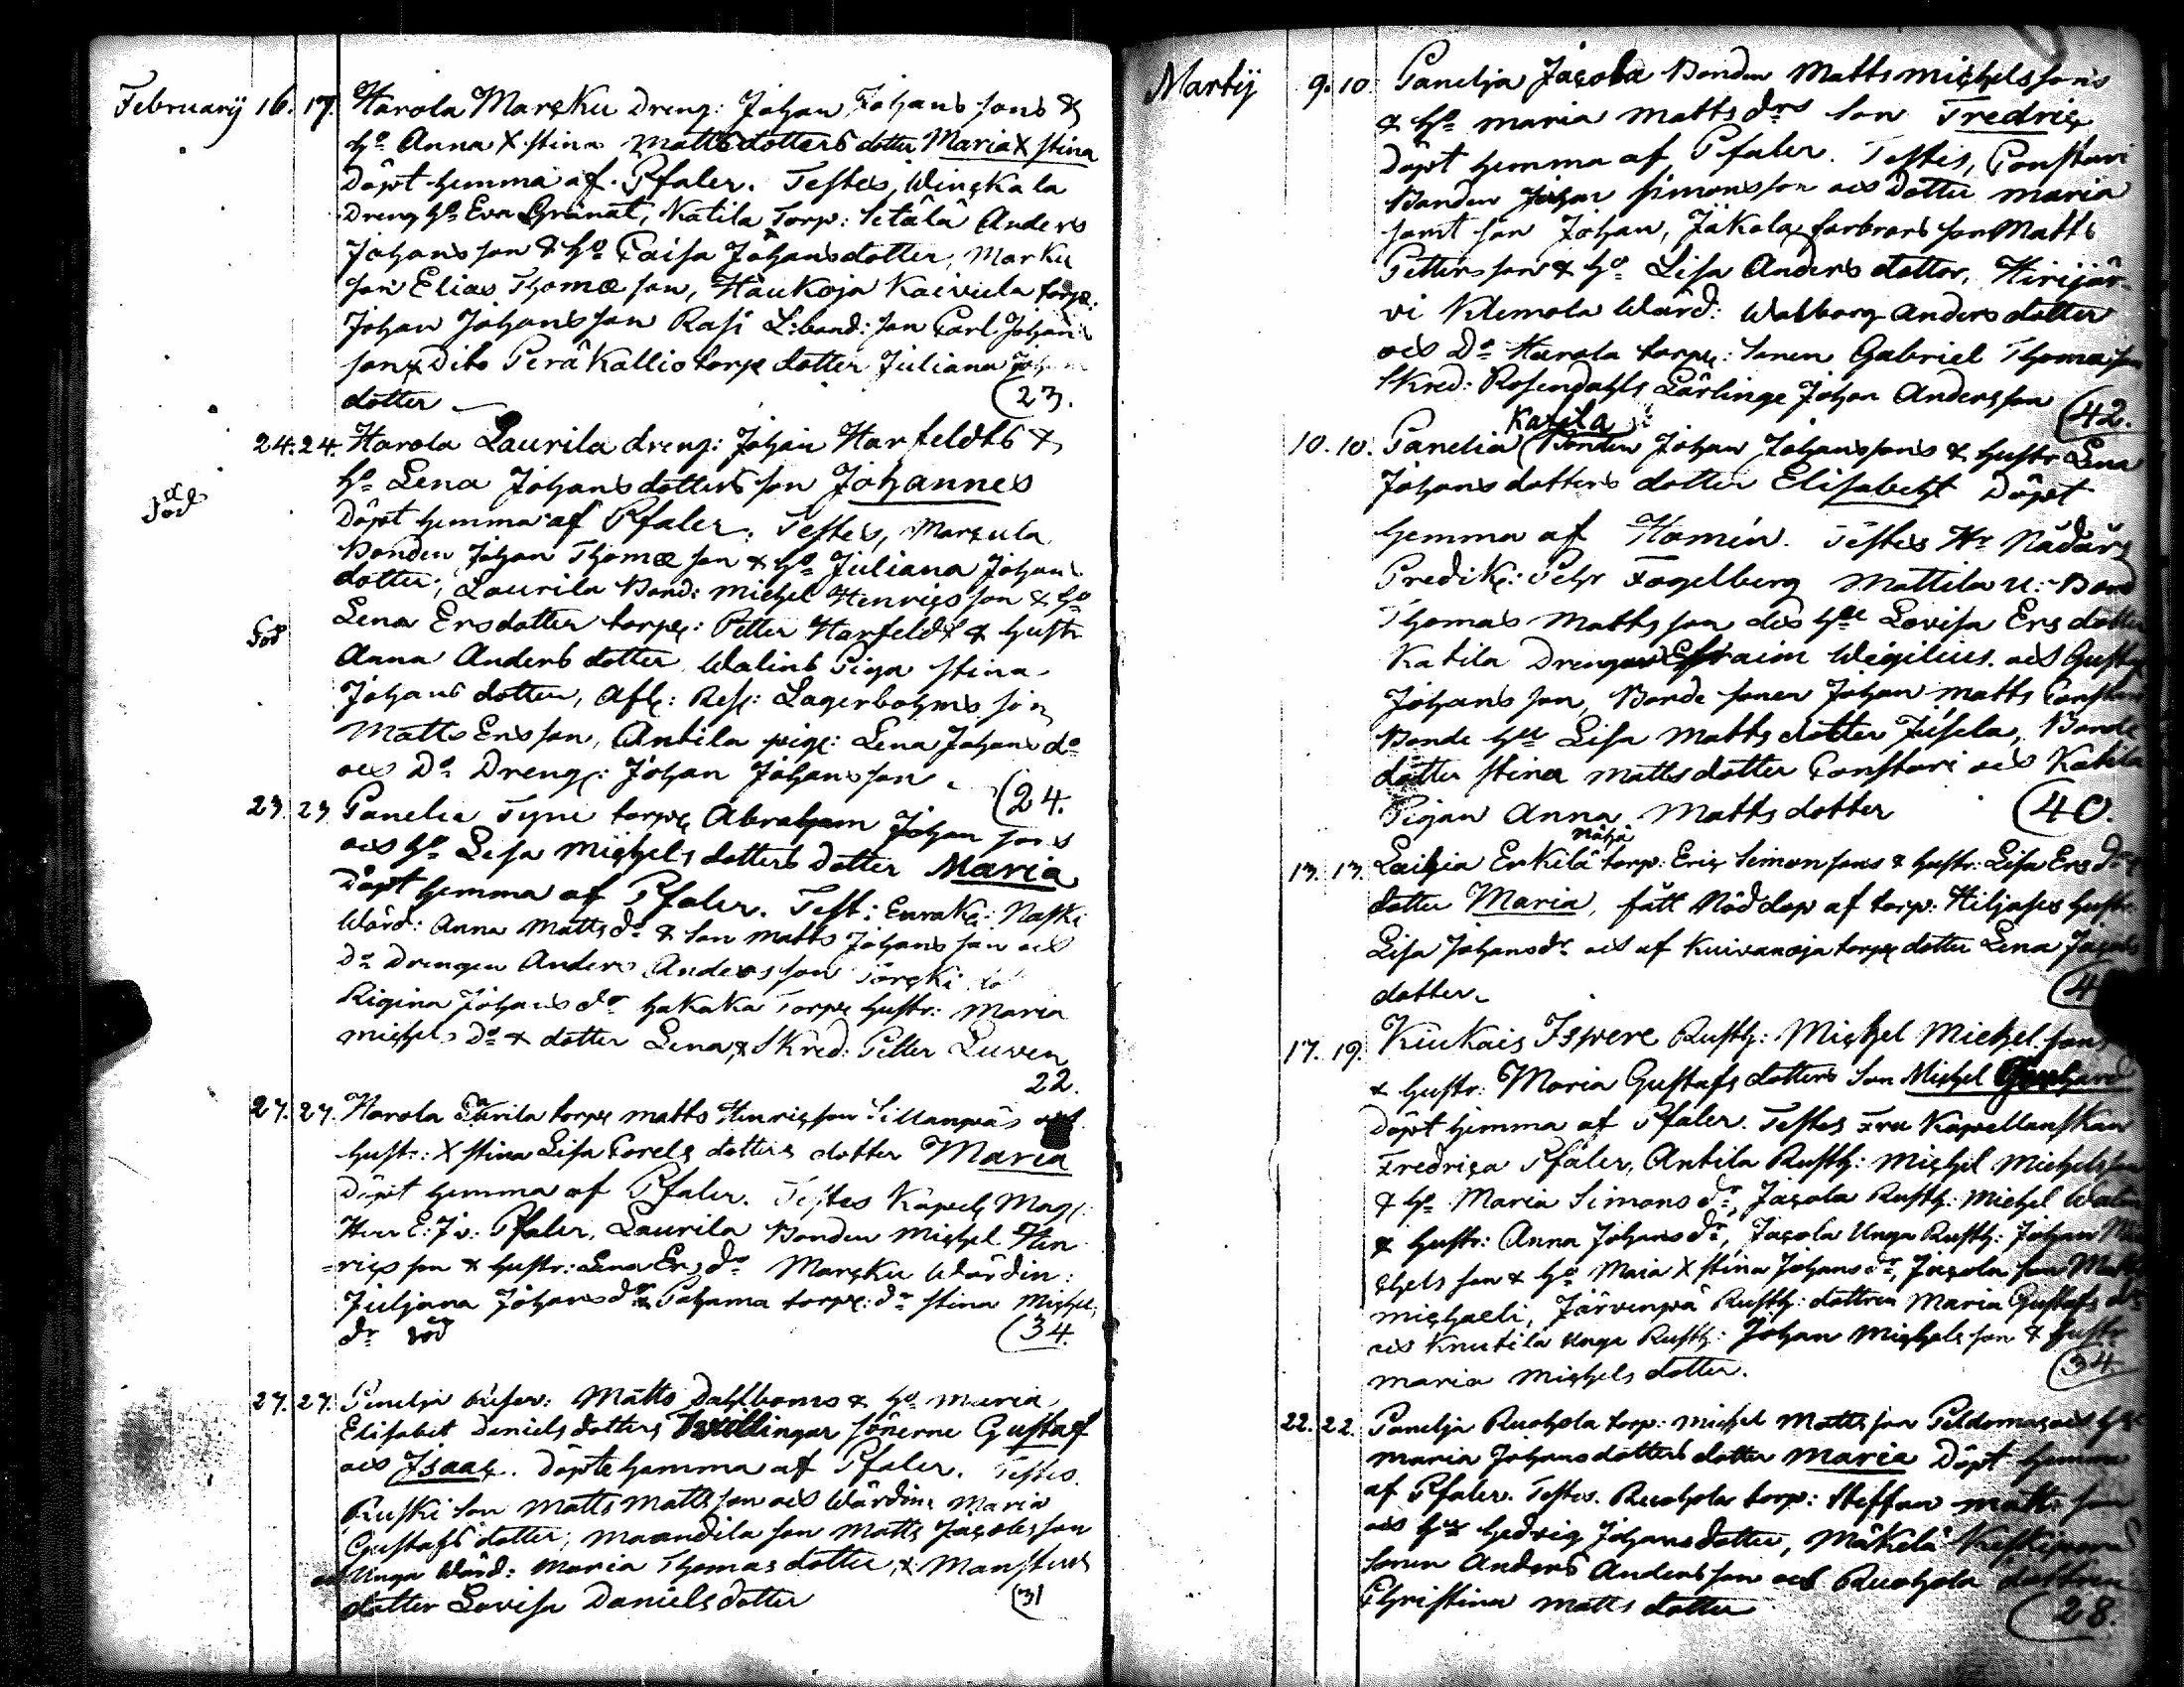 Februarij 16. 17. Harola Marcku Dreng: Johan Johans sons &
h:o Anna Xstina Mattsdotters dotter Maria Xstina
Döpt hemma af Pfaler. Testes, Winckala
Dreng h:o Eva Granat, Katila Torp: Setälä Anders
Johansson & h:o Caisa Johansdotter, Marku
son Elias Thomæ son, Haukoja Kaivula torp:
Johan Johansson Rasi L:bond: son Carl Johans
son & Dito Peräkallio torp dotter Juliana Johans
dotter (23.
24. 24. Harola Laurila dreng: Johan Harfeldts &
h:o Lena Johansdotters son Johannes
död
Döpt hemma af Pfaler. Testes, Marcula
Bonden Johan Thomæ son & h:o Juliana Johans
dotter, Laurila Bond: Michel Henrics son & h:o
död
Lena Ersdotter torp: Petter Harfeldt & hustr
Anna Anders dotter Walins Piga Stina
Johans dotter, Afl: Lagerbohms son
Matts Ersson, Antila pig: Lena Johans d:o
och D:o Dreng: Johan Johansson (24.
23. 23 Panelia Tyni torp Abraham Johan sons
och h:o Lisa Michels dotters Dotter Maria
Döpt hemma af Pfaler. Test: Naski
Wärd: Anna Matts d:o & son Matts Johans son och
D:o Drengen Anders Andersson
Rigina Johans d:r hakaka Torp hustr: Maria
Michels D:o & dotter Lena, & Skred: Petter Luren
22.
27. 27. Harola Laurila torp Matts Henricsson Sillanpää och
hust: Xstina Lisa Carels dotters dotter Maria
Döpt hemma af Pfaler. Testes Kapel: Mag:
Herr E: J: v: Pfaler, Laurila Bonden Michel Hen
=rics son & hustr: Lena Ers d:o Marcku Wärdin:
Juljana Johans d:r & Pohjama torp: d:r Stina Michels
d:r död (34.
27. 27. Panelja Matts Dahlboms & h:o Maria
Elisabet Daniels dotters Twillingar sönerne Gustaf
och Isaac. Döpte hemma af Pfaler. Testes.
Ruski son Matts Mattsson och Wärdin: Maria
Gustafs dotter, Maandila son Matts Jacobsson
och Unga Wärd: Maria Thomas dotter, &
dotter Lovisa Daniels dotter (31
Martij 9. 10. Panelja Jacola Bonden Matts Michelssons
& h:o Maria Matts d:rs son Fredric
Döpt hemma af Pfaler. Testes, Constari
Bonden Johan Simonsson och Dotter Maria
samt son Johan, Jäkola farbrors son Matts
Pettersson & h:o Lisa Anders dotter, Hirijär-
vi Klemola Wärd: Walborg Anders dotter
och D:o Harola torp: sonen Gabriel Thomasson
Skred: Rosendahls Lärlinge Johan Andersson (42.
Katila
10. 10. Panelia Bonden Johan Johanssons & hustr Lena
Johans dotters dotter Elisabeht Döpt
hemma af Homén. Testes Hr Nådårs
Predik: Pehr Fogelberg Mattila u: Bond
Thomas Matts son och h:u Lovisa Ers dotter
Katila Drengar Efraim Wegilius och Gustaf
Johans son, Bonde sonen Johan Matts Constari
Bonde h:u Lisa Matts dotter Jusela, Bonde
dotter Stina Matts dotter Constari och Katila
Pigan Anna Matts dotter (40.
Näjä
13. 13. Laihia Erkilä torp: Eric Simonsons & hustr: Lisa Ers d:rs
dotter Maria, fått Nöddop af torp: Hiljases hustr:
Lisa Johans d:r och af Kuivanoja torp dotter Lena Jacobs
dotter. (4
17. 19. Kiukais Ispere Rusth: Michel Michel. sons
& hustr: Maria Gustafs dotters son Michel
Döpt hemma af Pfaler. Testes Fru Kapellanskan
Fredrica Pfaler, Antila Rusth: Michel Michelsson
& h:o Maria Simons d:r, Jacola Rusth: Michel Walin
& hustr: Anna Johans d:r, Jacola Unga Rusth: Johan Mi
chels son & h:o Maia Xstina Johans d:r, Jacola son Matts
Michaeli, Järvenpä Rusth: dottren Maria Gustafs d:r
och Knutila Unga Rusth: Johan Michels son & hustr
Maria Michels dotter. (34.
22. 22. Panelja Ruohola torp: Michel Mattsson Peldomas och h:u
Maria Johans dotters dotter Maria Döpt hemma
af Pfaler. Testes. Ruohola torp: Steffan Matts son
och h:u Hedvig Johans dotter, Mäkelä
sonen Anders Andersson och Ruohola dottren
Christina Matts dotter (28.